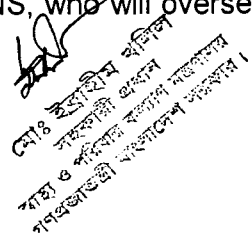 NS, who will overse
মোঃ ইব্রাহিম খলিল
সহকারী প্রধান
স্বাস্থ্য ও পরিবার কল্যাণ মন্ত্রণালয়
গণপ্রজাতন্ত্রী বাংলাদেশ সরকার।